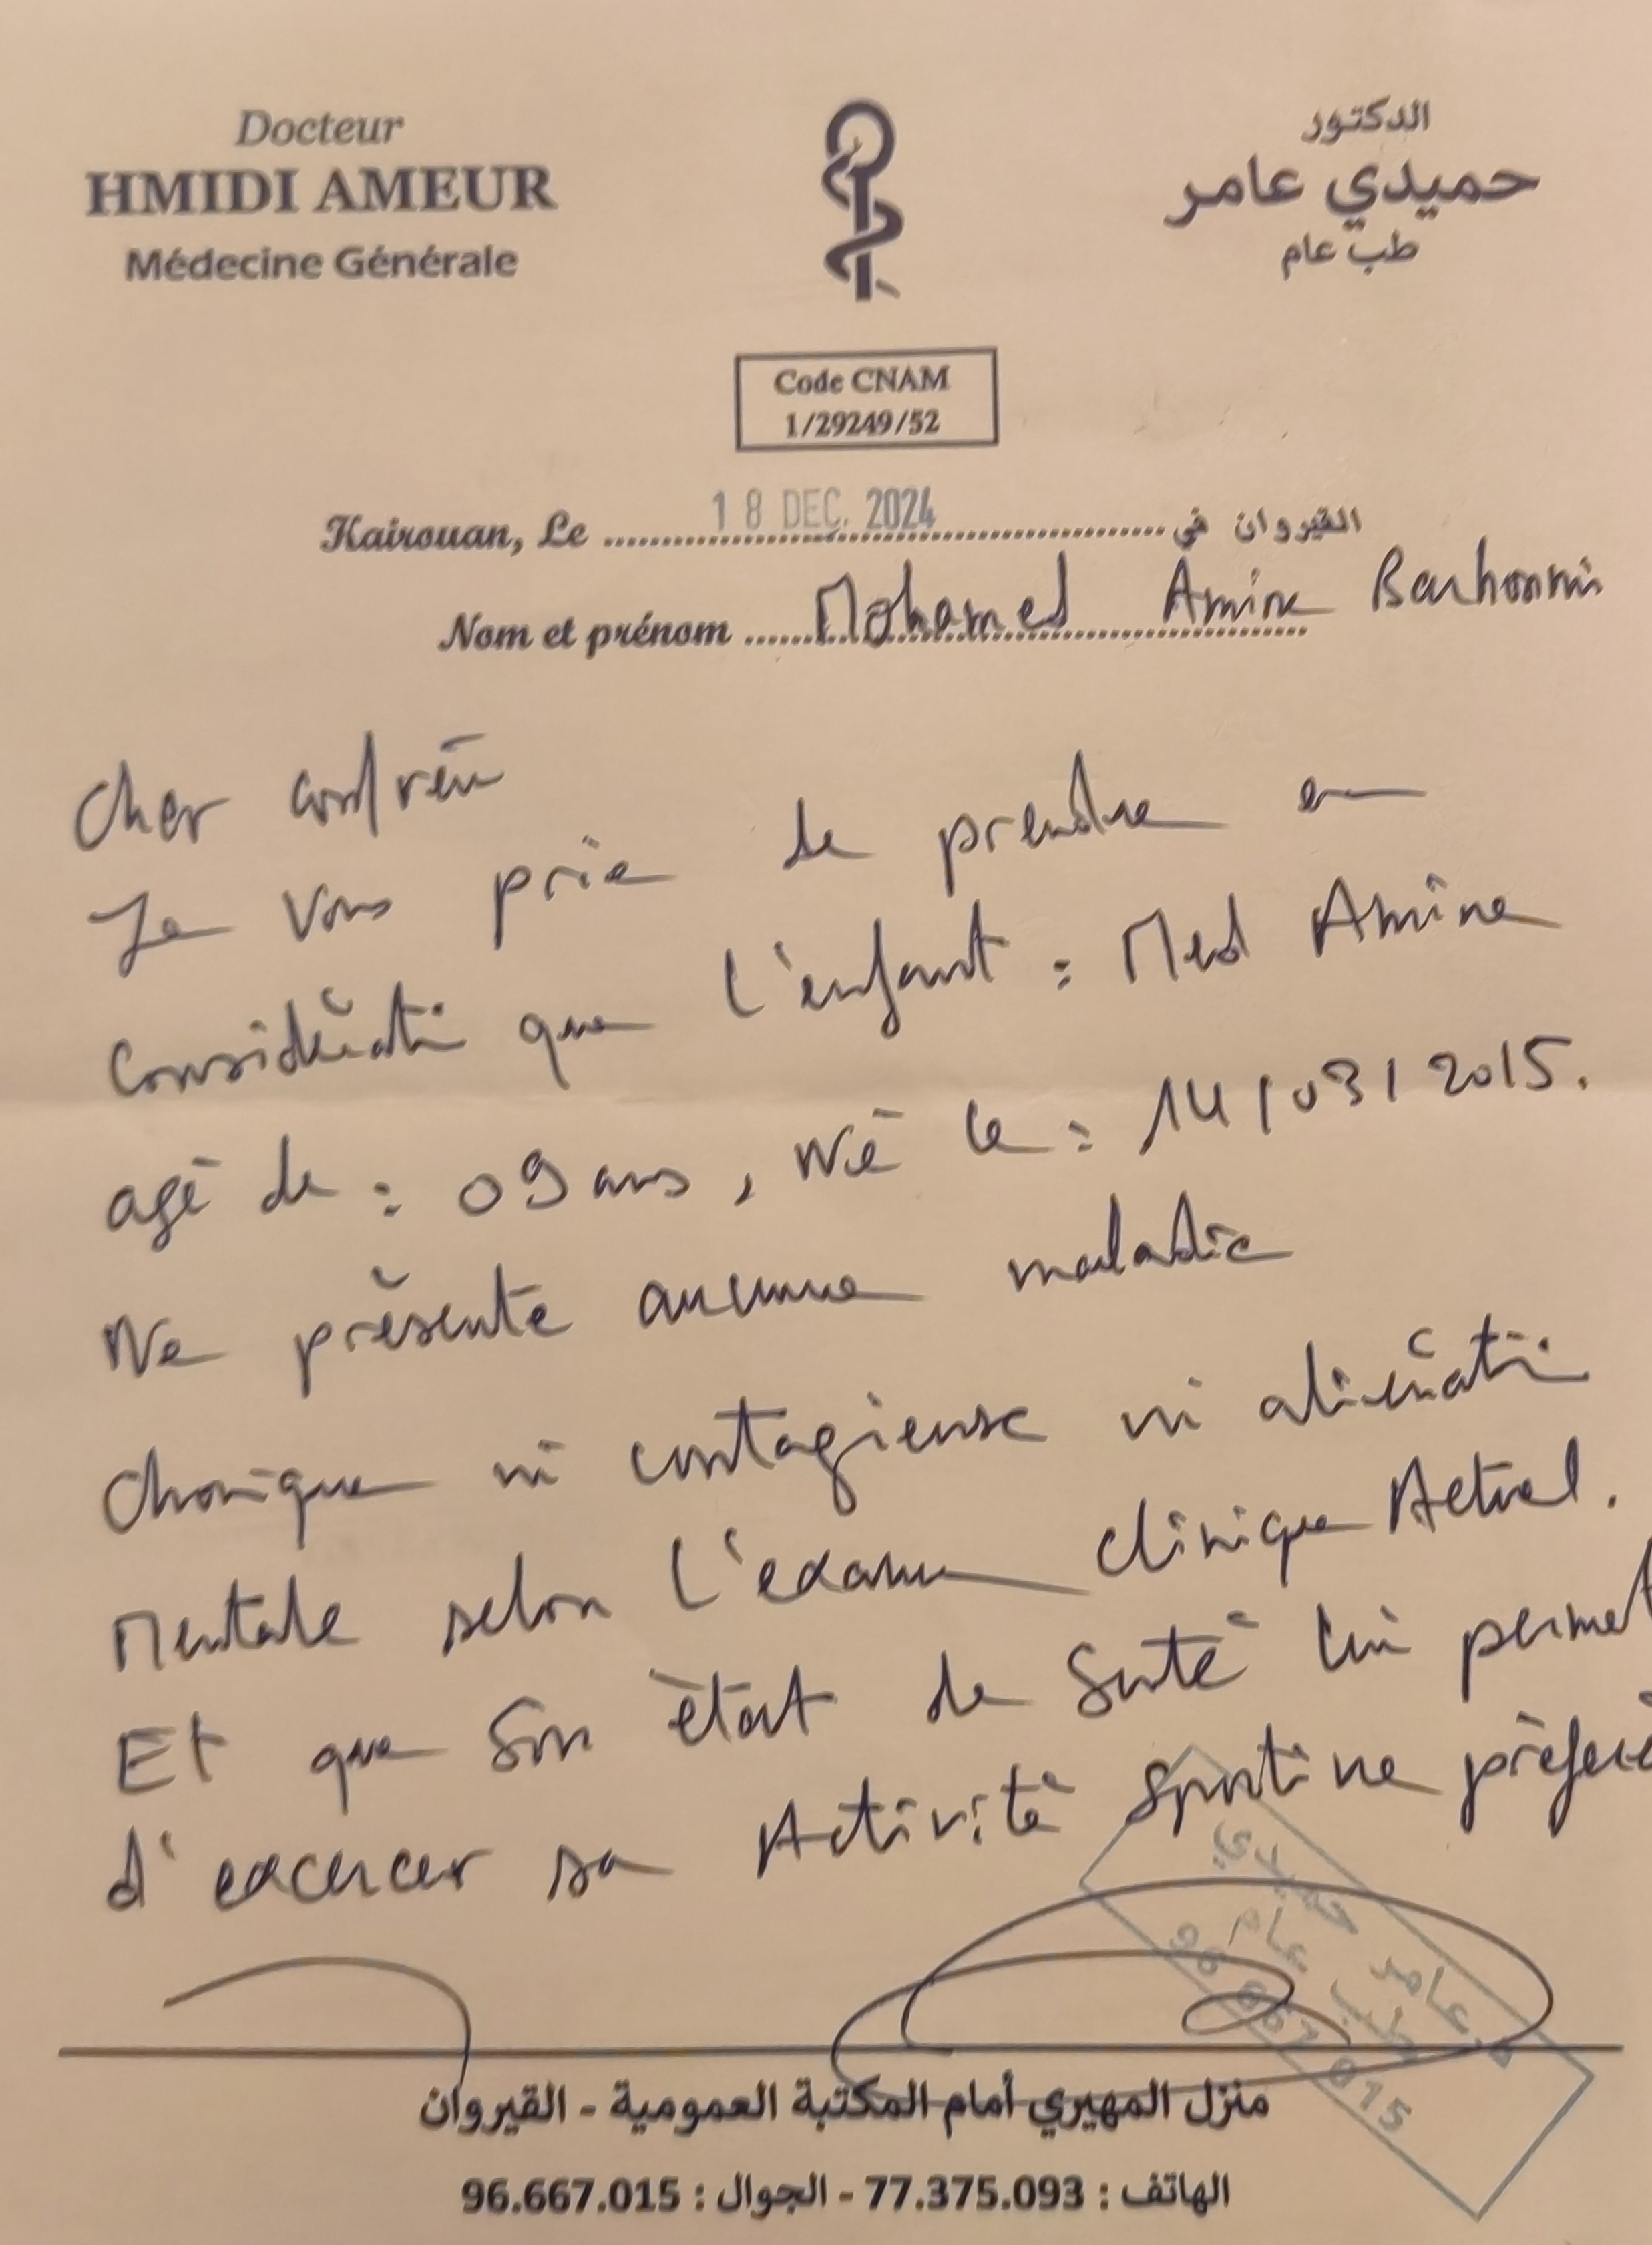 Docteur
HMIDI AMEUR
Médecine Générale
الدكتور
حميدي عامر
طب عام
Code CNAM
1/29249/52
Kairouan, Le 18 DEC. 2024 القيروان في
Nom et prénom Mohamed Amine Barhoumi
Cher confrère
Je vous prie de prendre en
Considération que l'enfant : Med Amine
agé de : 09 ans, Né le : 14/03/2015.
Ne présente aucune maladie
chronique ni contagieuse ni aliénation
Mentale selon l'examen clinique Actuel.
Et que son état de Santé lui permet
d'excercer sa Activité sportive préférée
د. عامر حميدي
طب عام
96 667 015
منزل المهيري أمام المكتبة العمومية - القيروان
الهاتف : 77.375.093 - الجوال : 96.667.015